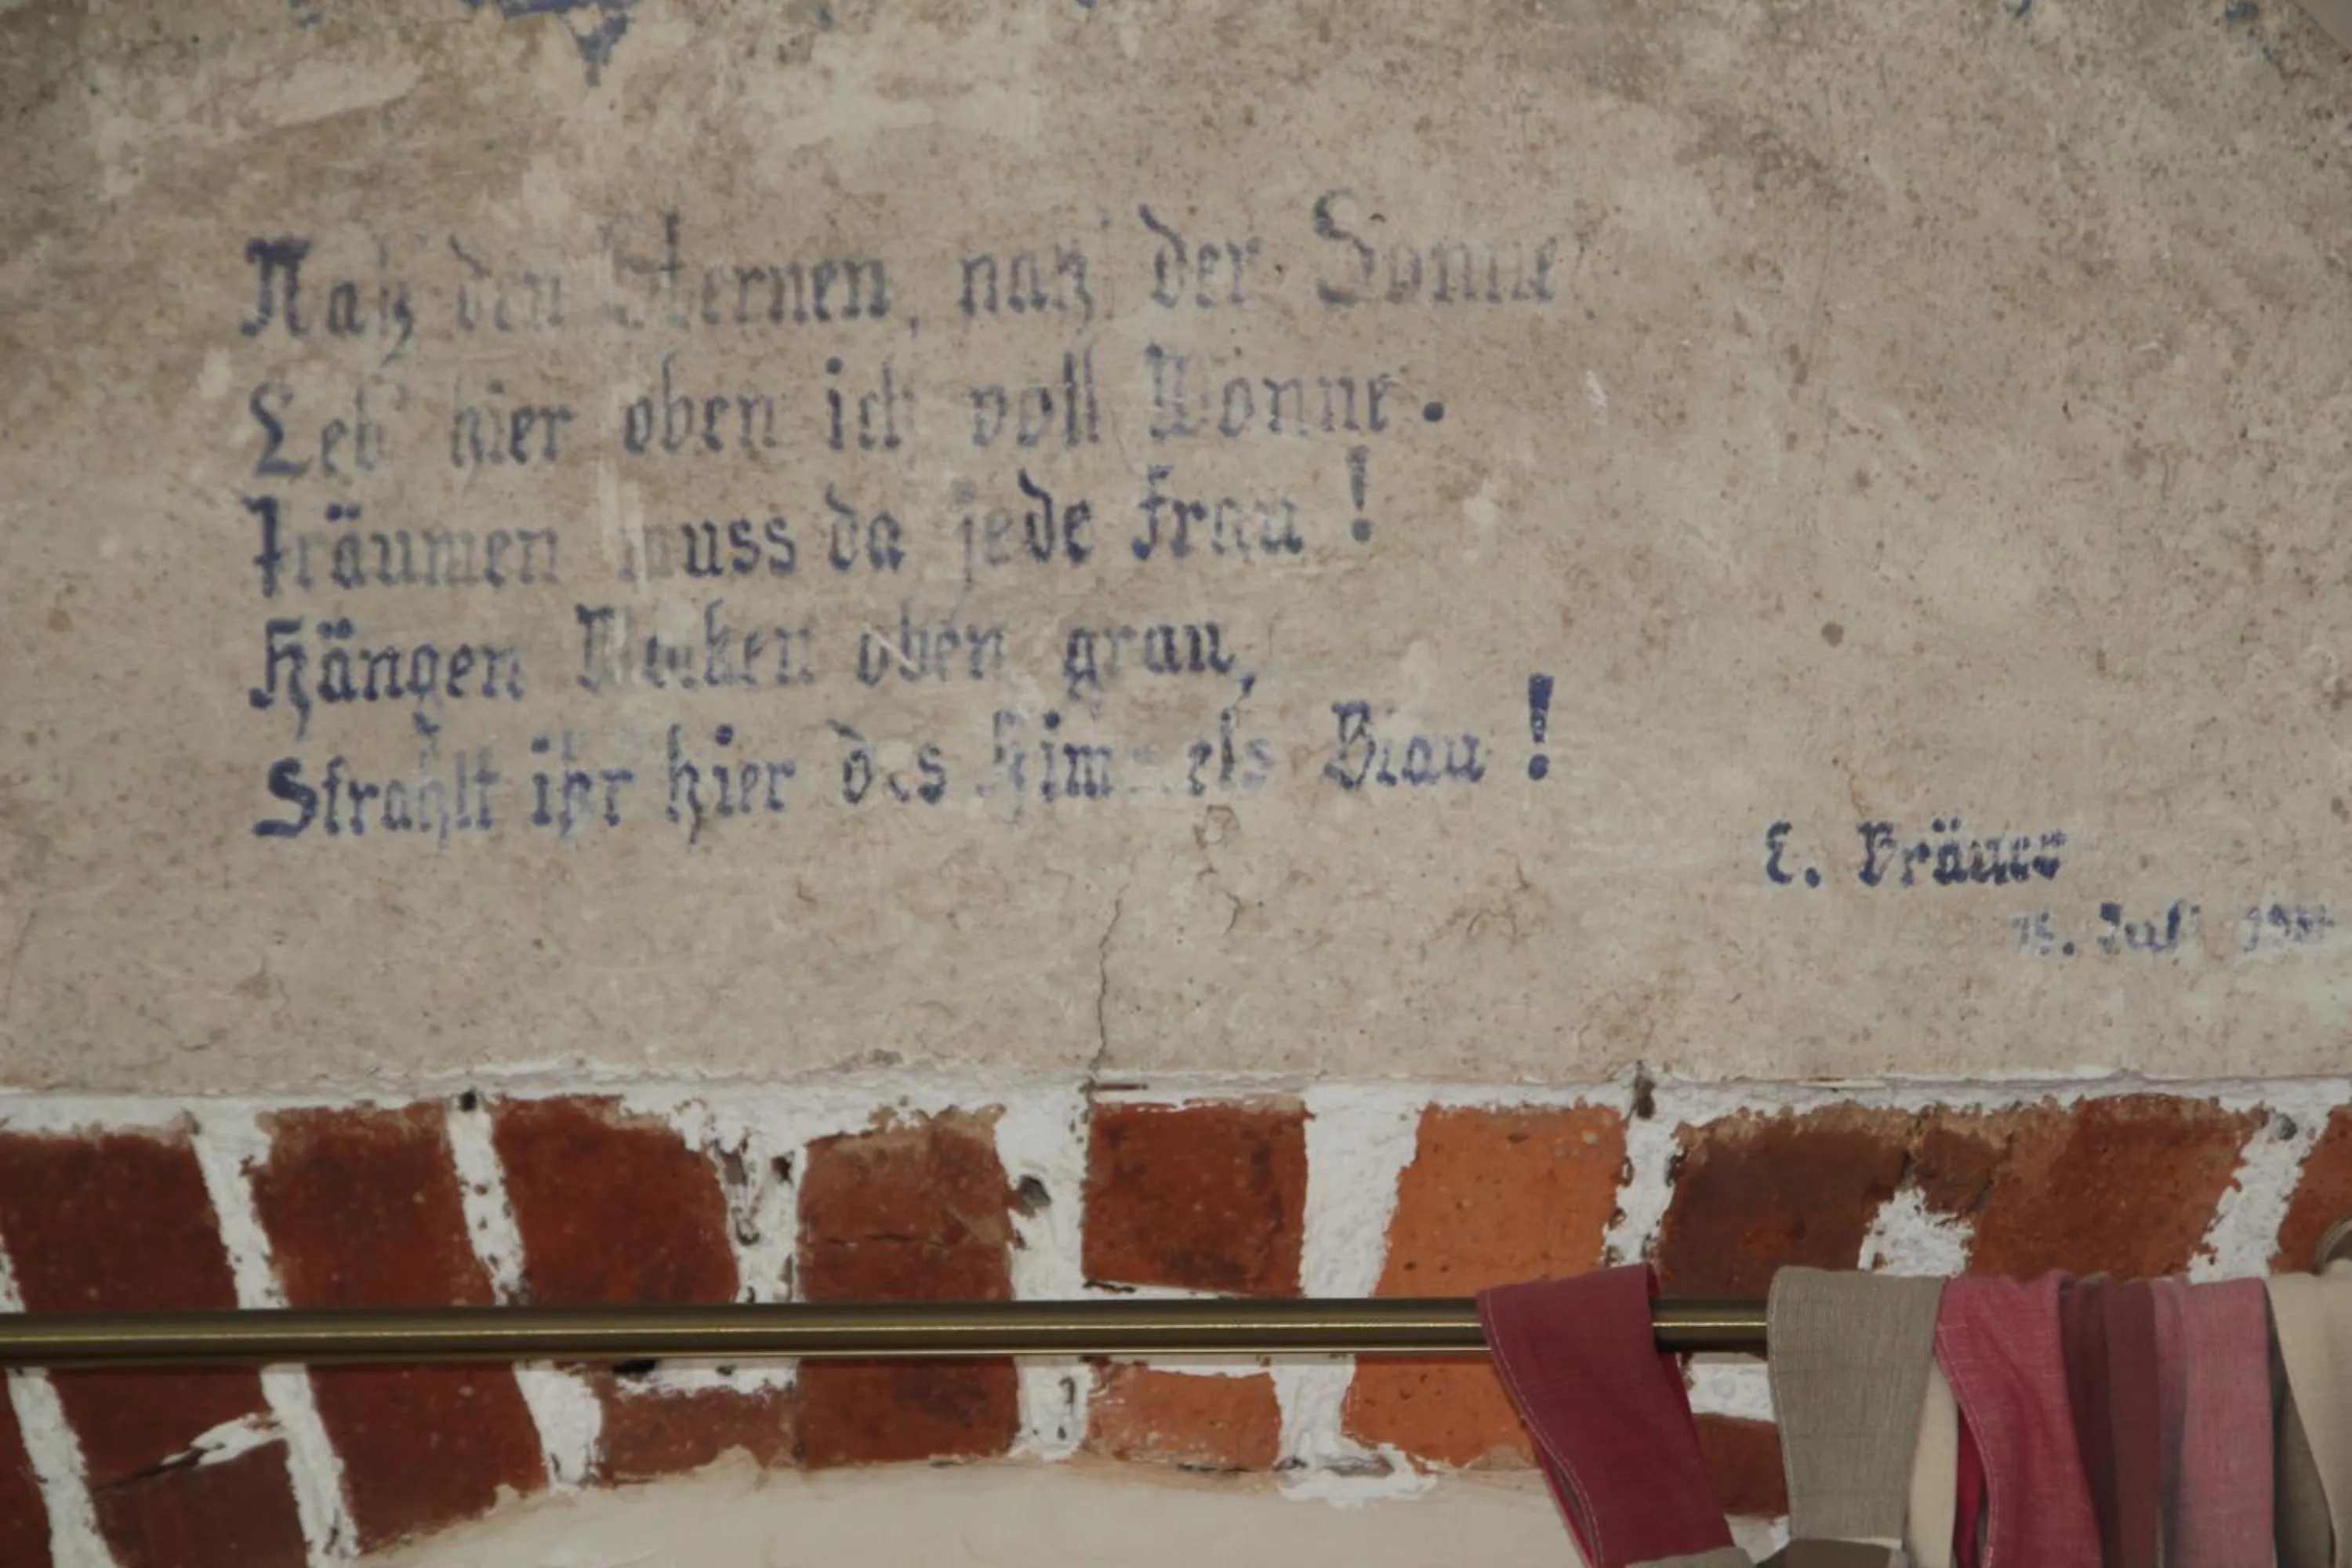 Nah' den Sternen, nah' der Sonne,
Leb' hier oben ich voll Wonne.
Träumen muss da jede Frau!
Hängen Wolken oben grau,
Strahlt ihr hier des Himmels Blau!
E. Bräuer
Juli